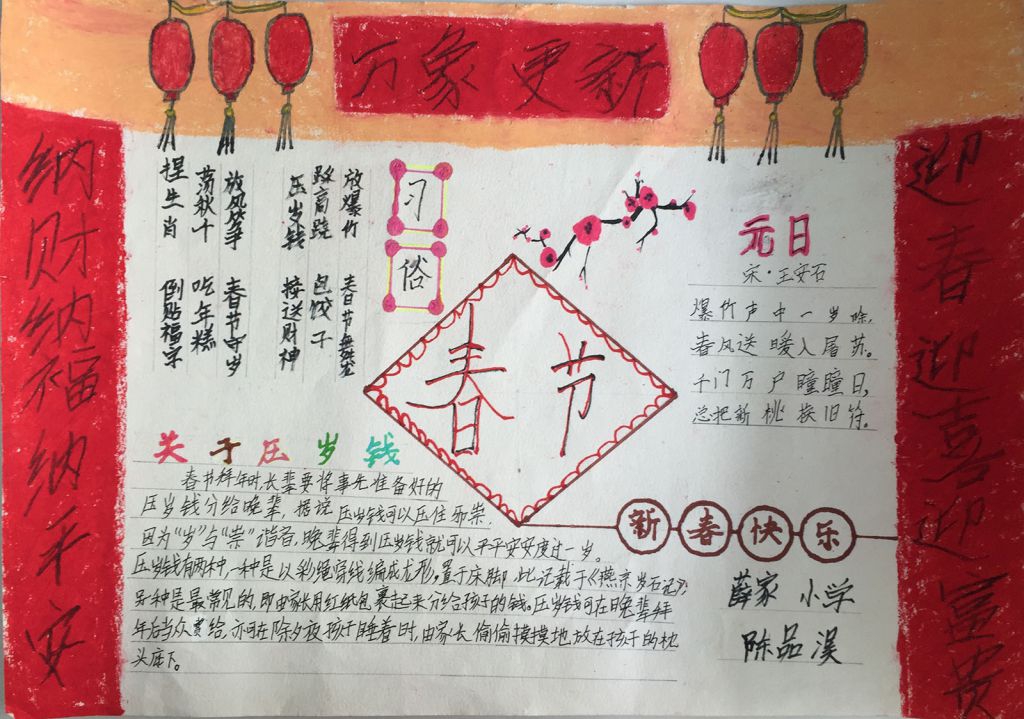 万象更新
纳财纳福纳平安
迎春迎喜迎富贵
习俗
放爆竹 春节
踩高跷 包饺子
压岁钱 接送财神
放风筝 春节守岁
荡秋千 吃年糕
捏生肖 倒贴福字
春节
元日
宋·王安石
爆竹声中一岁除,
春风送暖入屠苏。
千门万户瞳瞳日,
总把新桃换旧符。
关于压岁钱
春节拜年时,长辈要将事先准备好的
压岁钱分给晚辈,据说压岁钱可以压住邪祟,
因为“岁”与“祟”谐音,晚辈得到压岁钱就可以平平安安度过一岁。
压岁钱有两种,一种是以彩绳穿线编成龙形,置于床脚,此记载于《燕京岁石记》;
另种是最常见的,即由家长用红纸包裹起来分给孩子的钱。压岁钱可在晚辈拜
年后当众赏给,亦可在除夕夜孩子睡着时,由家长偷偷摸摸地放在孩子的枕
头底下。
新春快乐
薛家小学
陈品溪